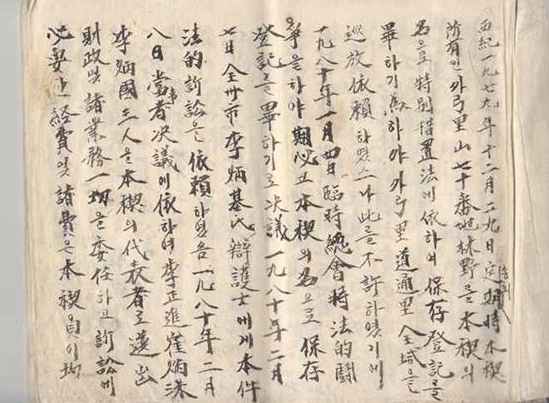 西紀一九七九年十二月二九日定期時本禊
所有인 外弓里山七十番地林野을 本禊의
名으로 特別措置法에 依하여 保存登記을
畢하기 爲하야 外弓里 道通里 全域을
巡放依賴하였으나 此를 不許하였기에
一九八十年一月四日 臨時總會時 法的鬪
爭을 하야 期必코 本禊의 名으로 保存
登記를 畢하기로 決議 一九八十年二月
七日 全州市 李炳基氏 辯護士에게 本件
法的 訴訟을 依賴하였음 一九八十年二月
八日 當事者 決議에 依하여 李正進 崔炳洙
李炳國 三人을 本禊의 代表者로 選出
財政및 諸業務一切을 委任하고 訴訟에
必要한 経費및 諸費은 本禊員이